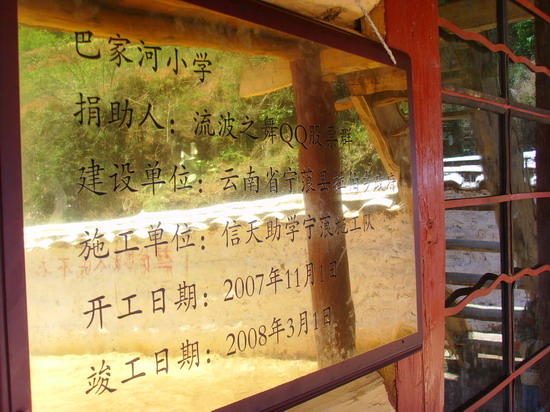 巴家河小学
捐助人：流波之舞QQ股票群
建设单位：云南省宁蒗县
施工单位：信天助学宁蒗施工队
开工日期：2007年11月1日
竣工日期：2008年3月1日